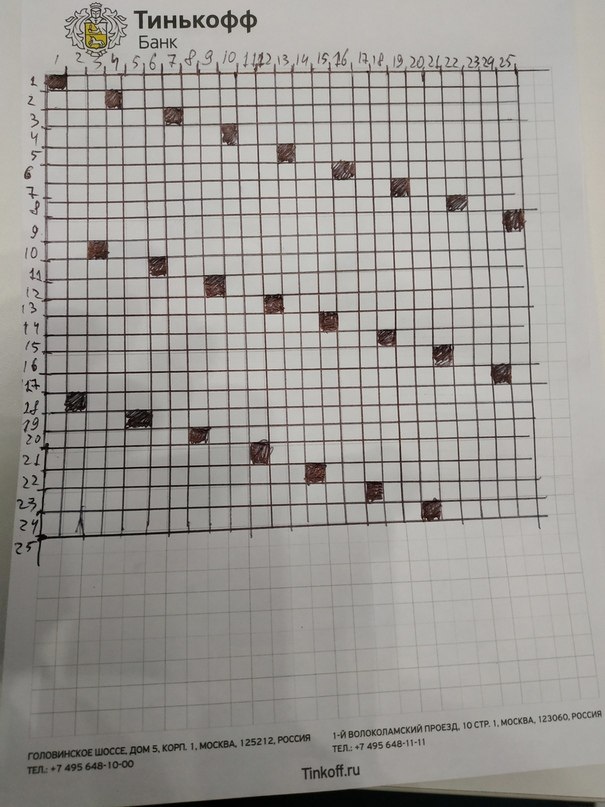 Тинькофф
Банк
1 2 3 4 5 6 7 8 9 10 11 12 13 14 15 16 17 18 19 20 21 22 23 24 25
1
2
3
4
5
6
7
8
9
10
11
12
13
14
15
16
17
18
19
20
21
22
23
24
25
ГОЛОВИНСКОЕ ШОССЕ, ДОМ 5, КОРП. 1, МОСКВА, 125212, РОССИЯ
ТЕЛ.: +7 495 648-10-00
1-Й ВОЛОКОЛАМСКИЙ ПРОЕЗД, 10 СТР. 1, МОСКВА, 123060, РОССИЯ
ТЕЛ.: +7 495 648-11-11
Tinkoff.ru